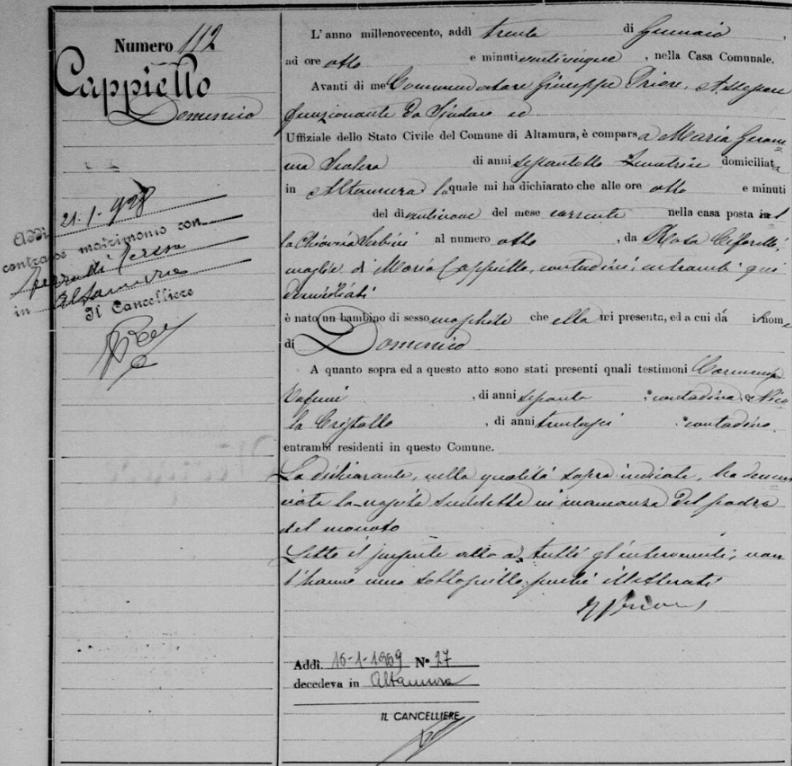 Numero 112
Cappiello
Domenico
Addì 21-1-928
contrasse matrimonio con
Teresa
in Altamura
Il Cancelliere
L'anno millenovecento, addì trenta di Gennaio,
ad ore otto e minuti venticinque, nella Casa Comunale.
Avanti di me Commendatore Giuseppe Priore, Assessore
funzionante da Sindaco ed
Uffiziale dello Stato Civile del Comune di Altamura, è comparsa Maria
di anni sessantotto Levatrice domiciliata
in Altamura la quale mi ha dichiarato che alle ore otto e minuti
del dì ventinove del mese corrente nella casa posta in
al numero otto, da Rosa
moglie di Cappiello, contadini, entrambi qui
domiciliati
è nato un bambino di sesso maschile che ella mi presenta, ed a cui dà il nome
di Domenico
A quanto sopra ed a questo atto sono stati presenti quali testimoni
di anni sessanta contadino e Nico
la Cristallo, di anni trentasei contadino,
entrambi residenti in questo Comune.
La dichiarante, nella qualità sopra indicata, ha denun
ciato la nascita suddetta in mancanza del padre
del neonato
Letto il presente atto a tutti gl'intervenuti, non
l'hanno meco sottoscritto perché illetterati
Addì 16-1-1969 N° 27
decedeva in Altamura
IL CANCELLIERE